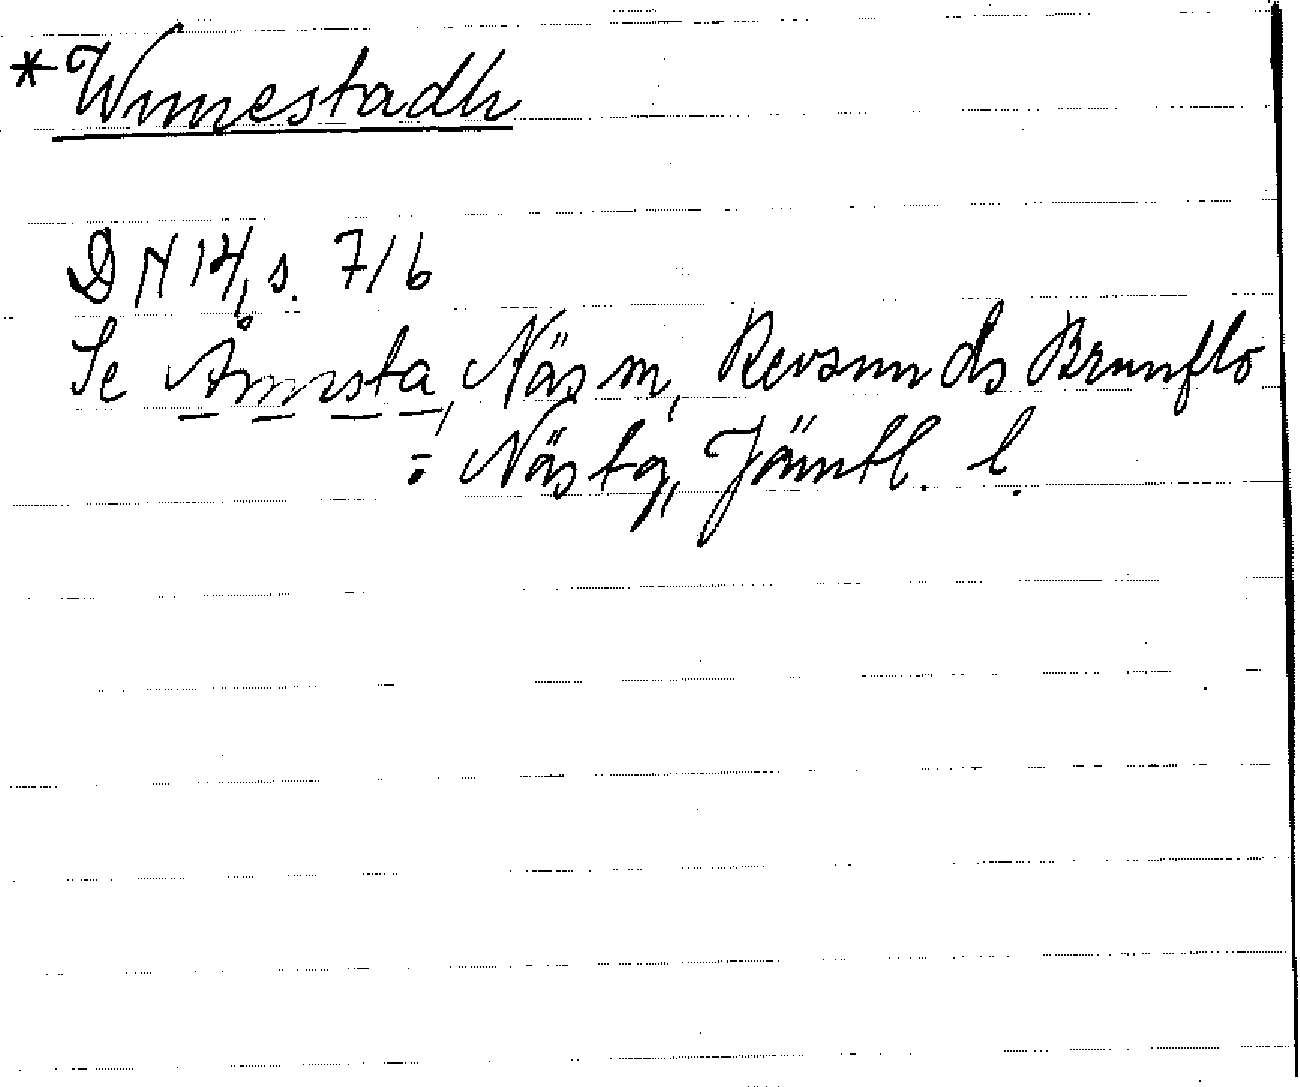 *Wnnestadh
DN 14, s. 716
Se Ånnsta, Näs sn, Revsunds Brunflo
= Näs tg, Jämtl. l.